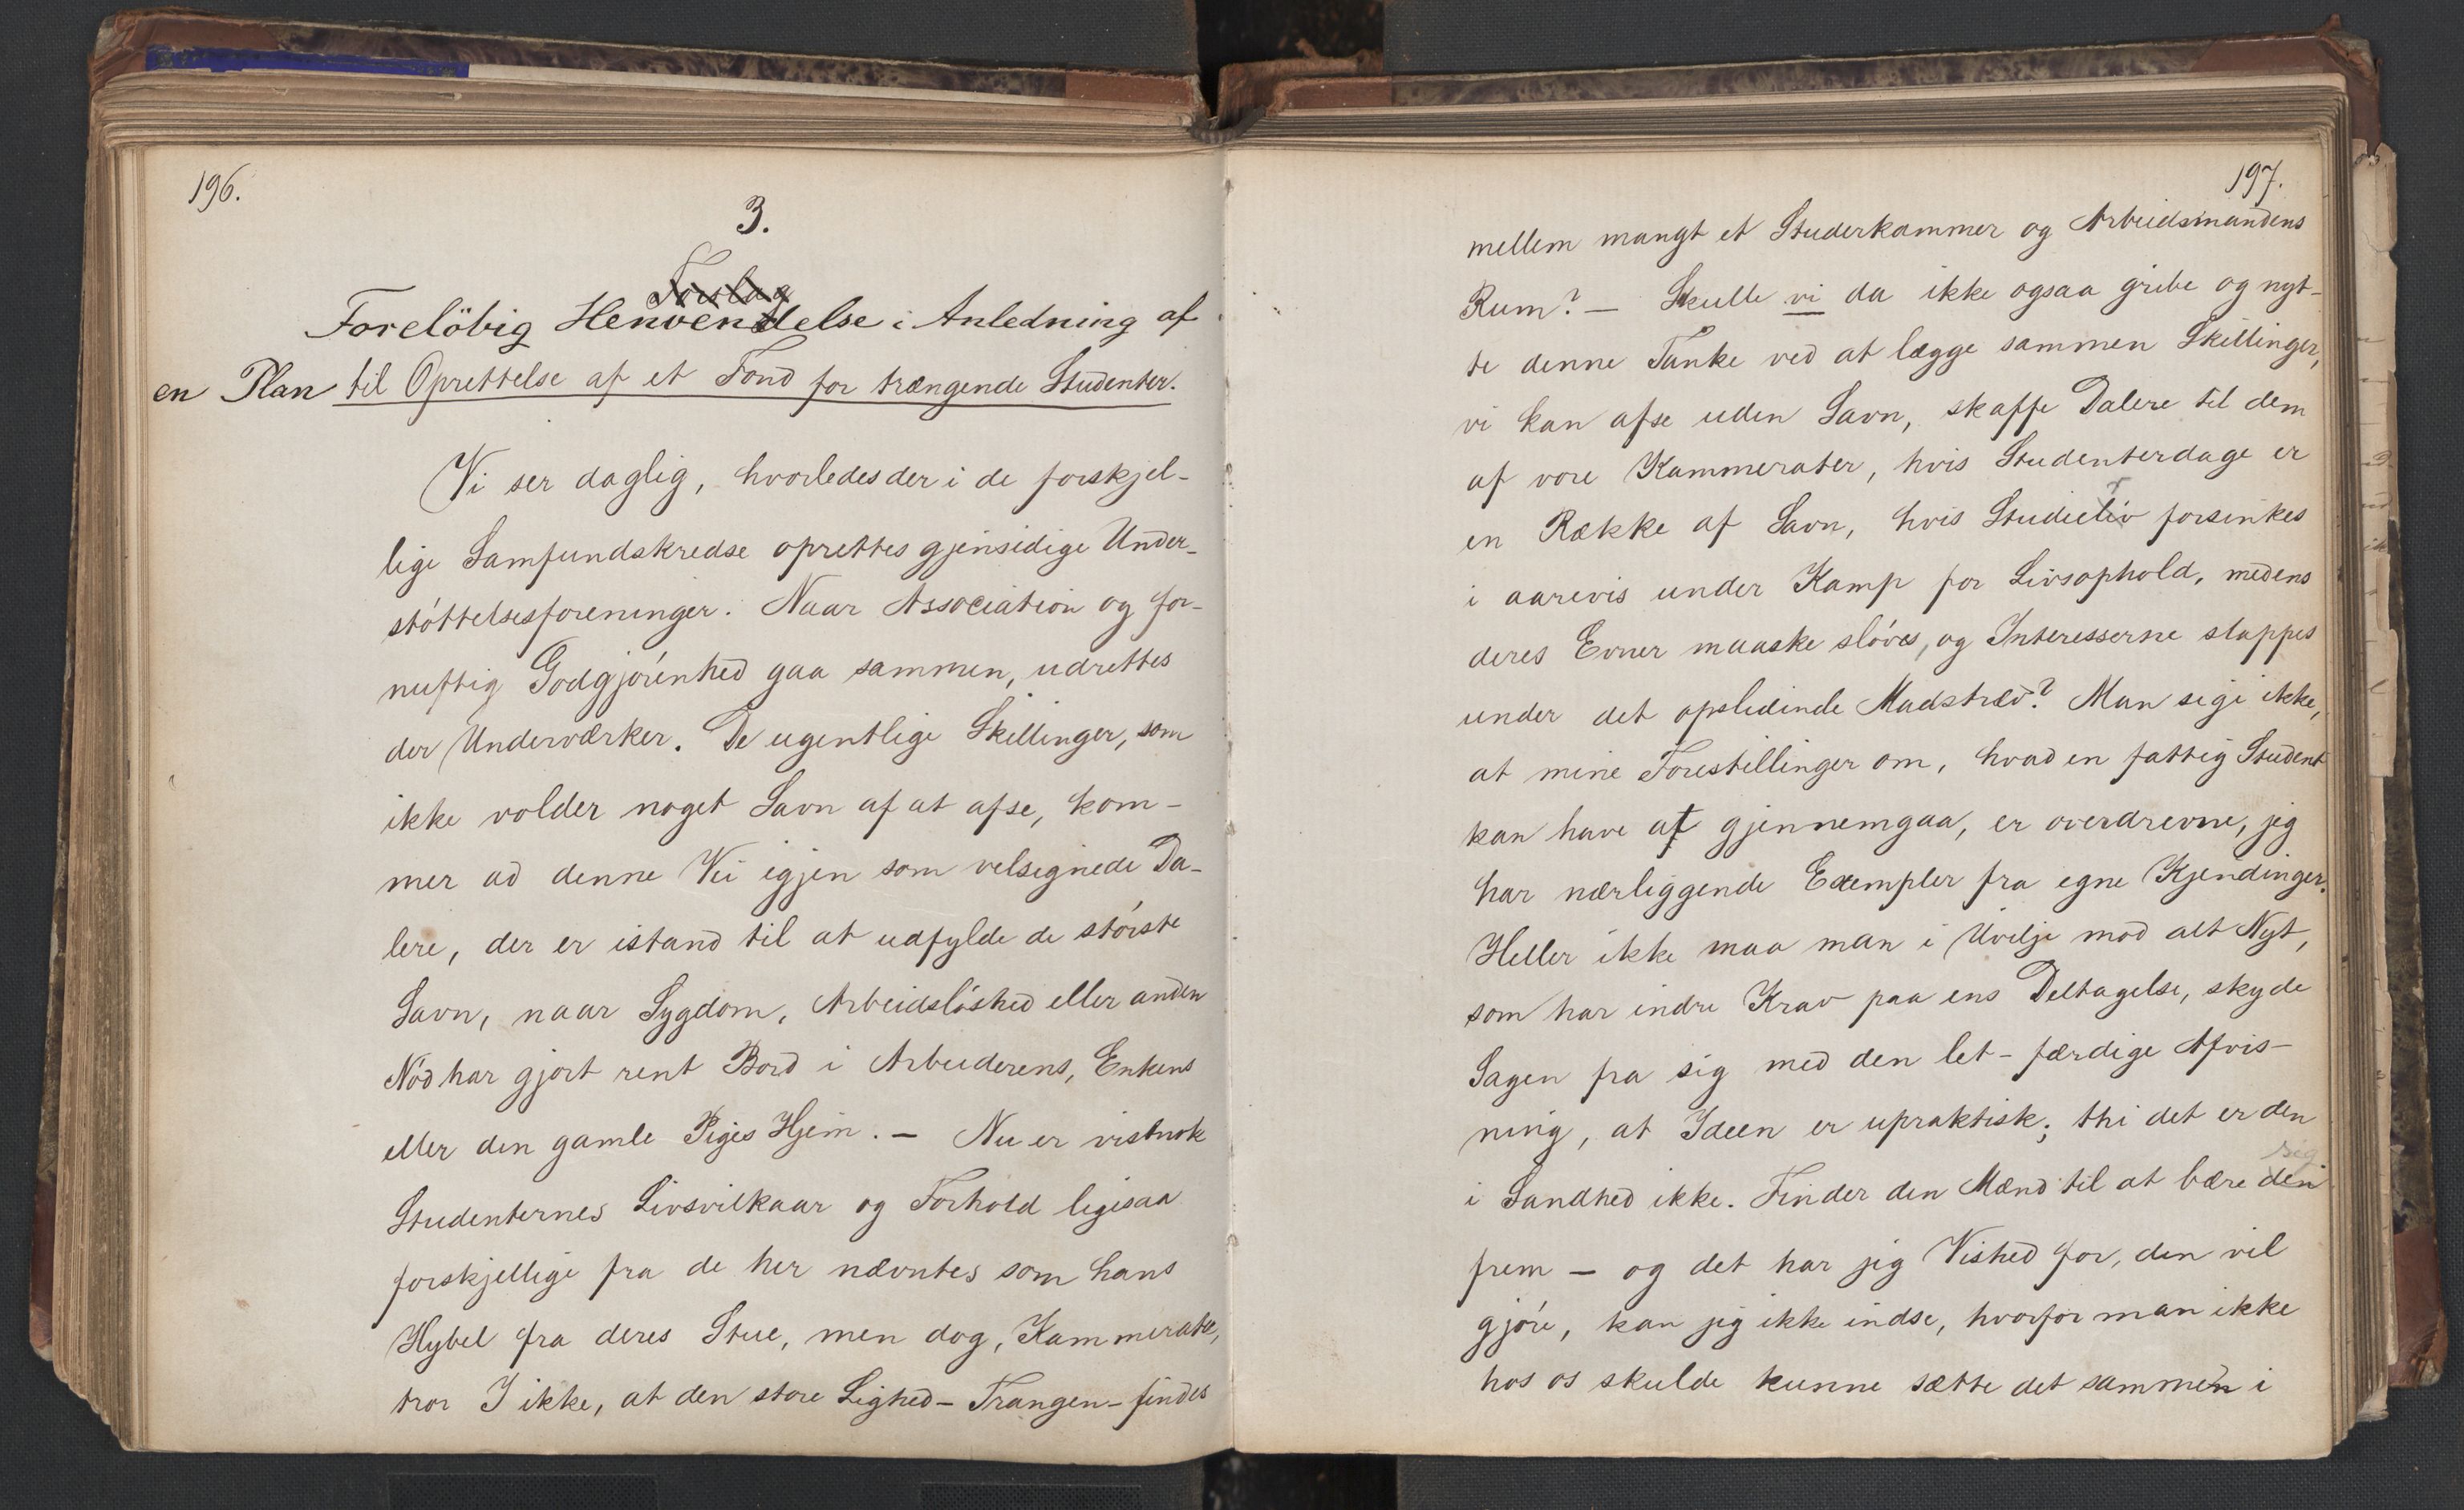 196.
3.
Forslag
Forelöbig Henvendelse i Anledning af
en Plan til Oprettelse af et Fond for trængende Studenter.
Vi ser daglig, hvorledes der i de forskjel-
lige Samfundskredse oprettes gjensidige Under-
støttelsesforeninger. Naar Association og for-
nuftig Godgjörenhed gaa sammen, udrettes
der Underværker. De ugentlige Skillinger, som
ikke volder noget Savn af at afse, kom-
mer ad denne Vei igjen som velsignede Da-
lere, der er istand til at udfylde de störste
Savn, naar Sygdom, Arbeidslöshed eller anden
Nöd har gjort rent Bord i Arbeiderens, Enkens
eller den gamle Piges Hjem. — Nu er vistnok
Studenternes Livsvilkaar og Forhold ligesaa
forskjellige fra de her nævntes som hans
Hybel fra deres Stue, men dog, Kammerater,
tror I ikke, at den store Lighed - Trangen - findes
197.
mellem mangt et Studerkammer og Arbeidsmandens
Rum? — Skulle vi da ikke ogsaa gribe og nyt-
te denne Tanke ved at lægge sammen Skillinger,
vi kan afse uden Savn, skaffe Dalere til dem
af vore Kammerater, hvis Studenterdage er
en Række af Savn, hvis Studieliv forsinkes
i aarevis under Kamp for Livsophold, medens
deres Evner maaske slöves, og Interesserne slappes
under det opslidende Madstræv? Man sige ikke,
at mine Forestillinger om, hvad en fattig Student
kan have at gjennemgaa, er overdrevne, jeg
har nærliggende Exempler fra egne Kjendinger.
Heller ikke maa man i Uvilje mod alt Nyt,
som har indre Krav paa ens Deltagelse, skyde
Sagen fra sig med den let-færdige Afvis-
ning, at Ideen er upraktisk; thi det er den
i Sandhed ikke. Finder den Mænd til at bære den
sig
frem — og det har jeg Vished for, den vil
gjöre, kan jeg ikke indse, hvorfor man ikke
hos os skulde kunne sætte det sammen i